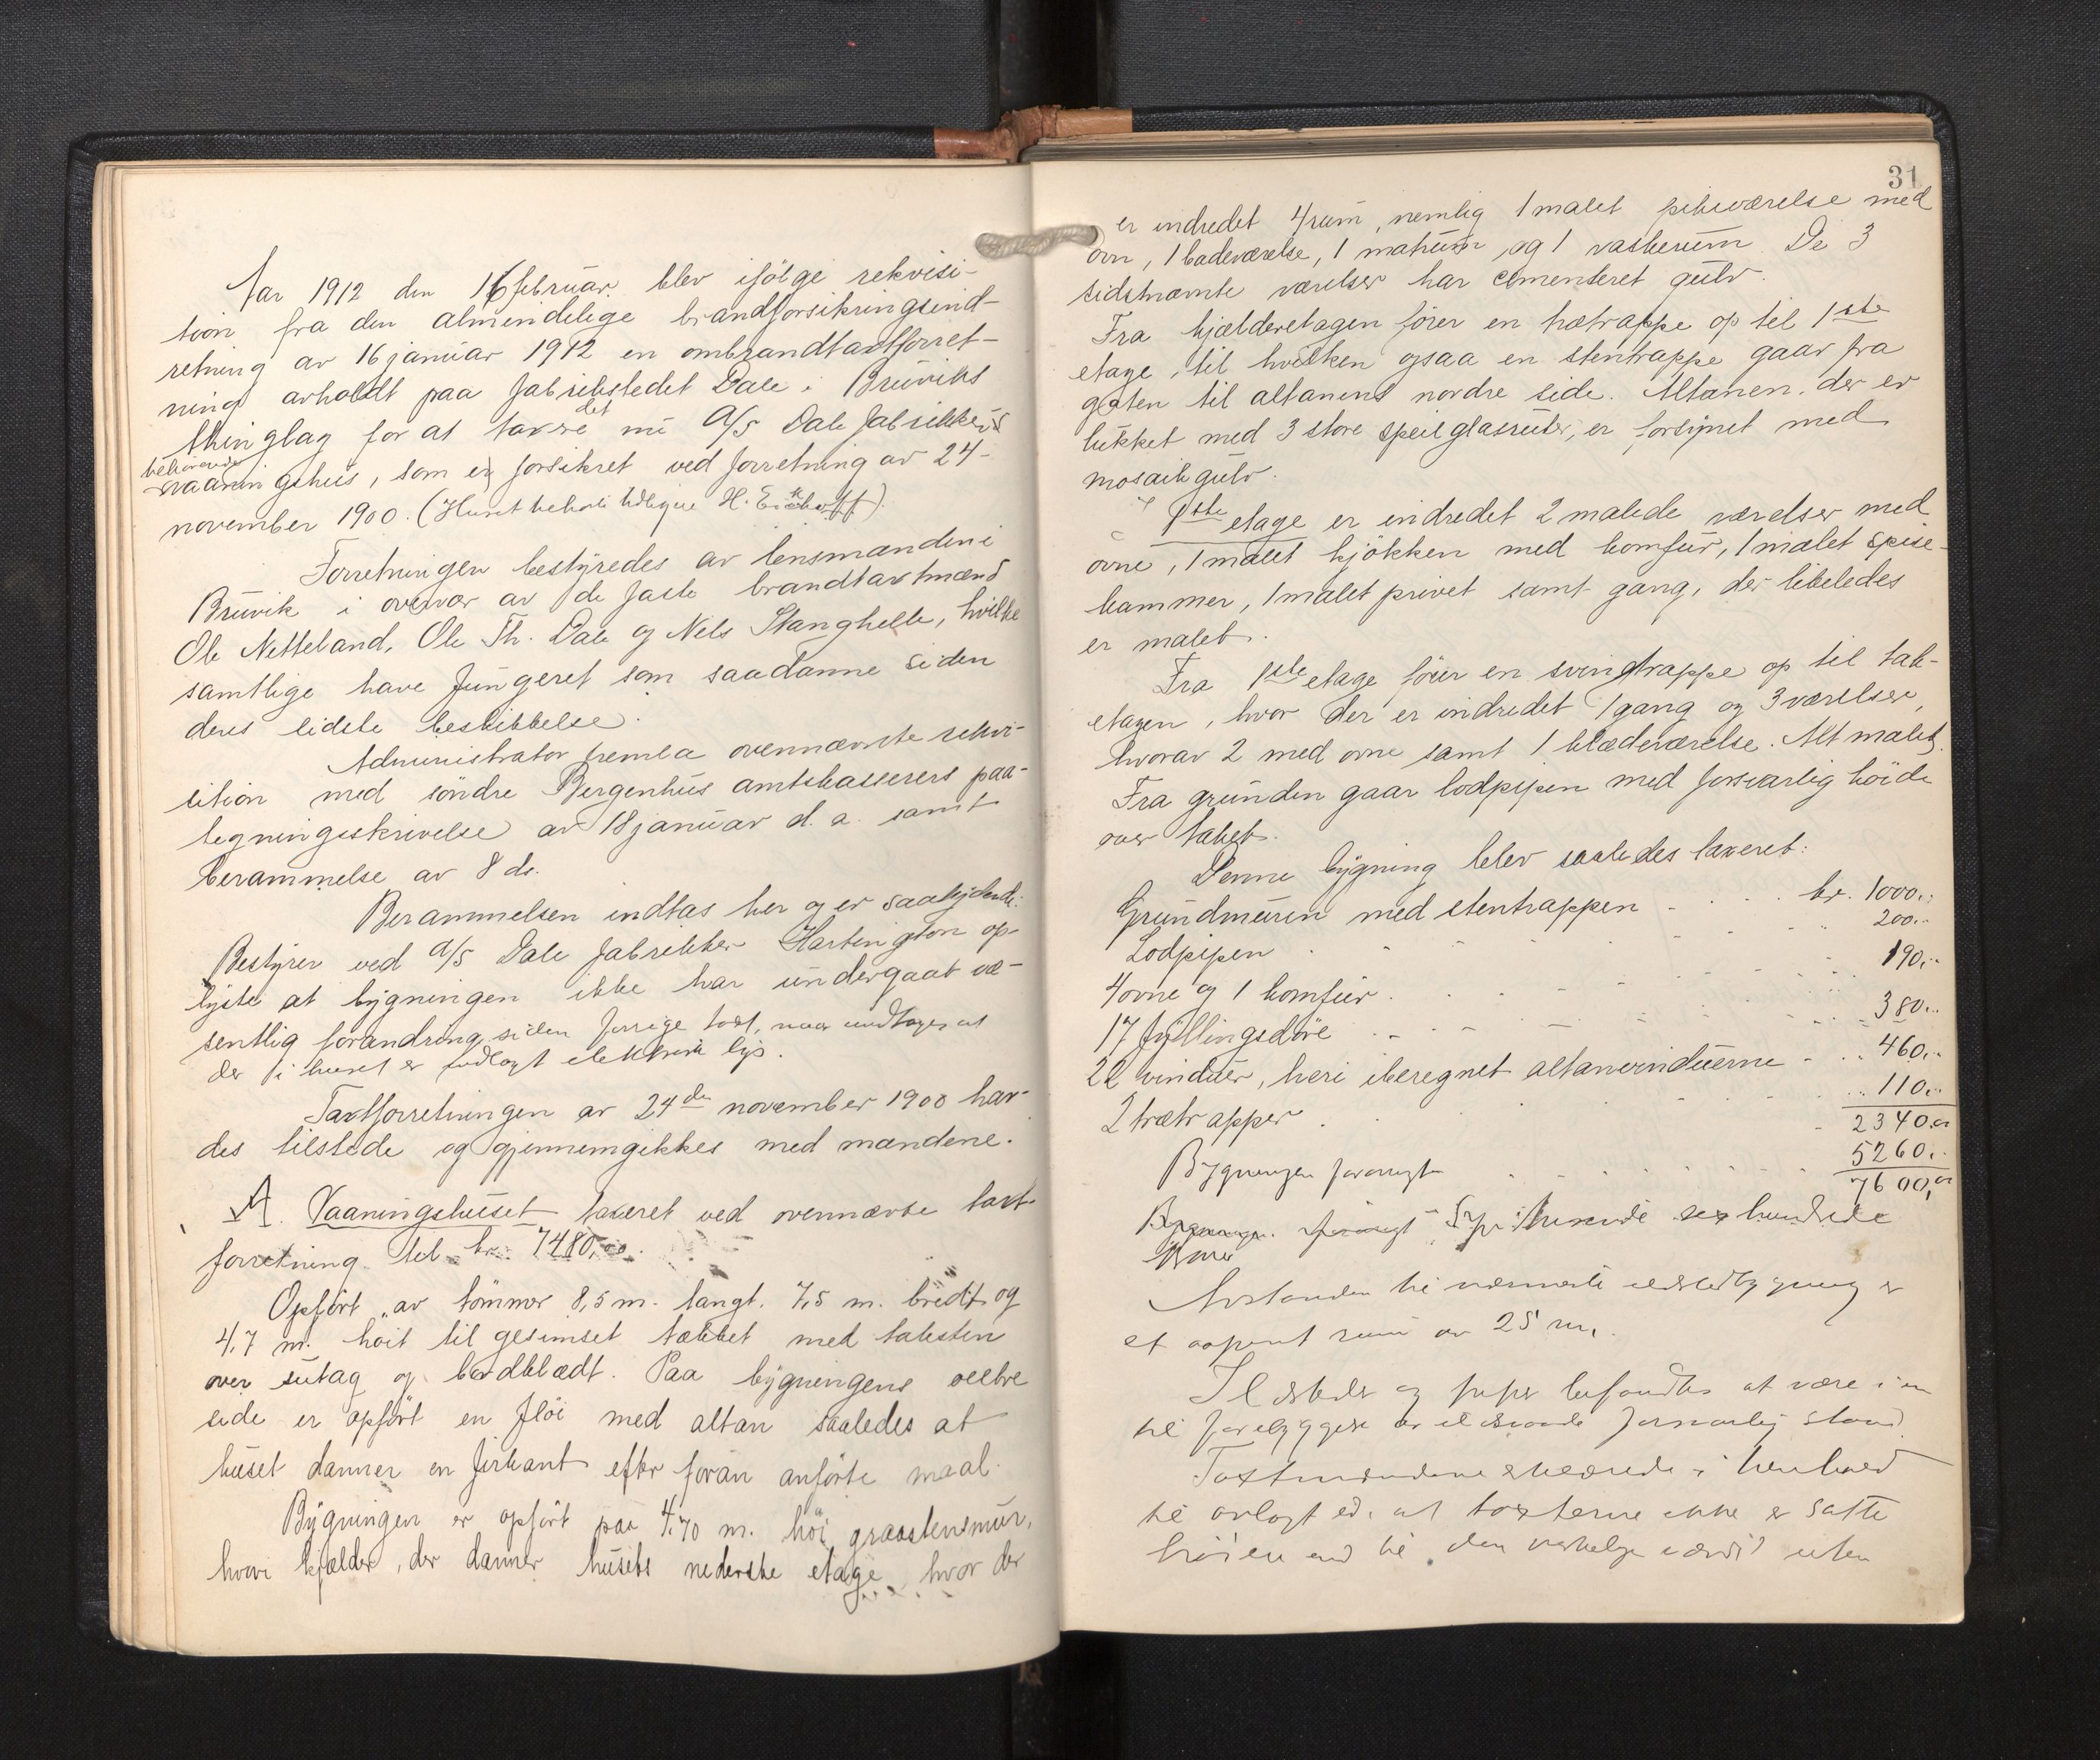 Aar 1912 den 16 februar blev ifølge rekvisi-
tion fra den almindelige brandforsikringsind-
retning av 16 januar 1912 en ombrandtaxtforret-
ning avholdt paa fabrikstedet Dale i Bruviks
thinglag for at taxere det nu A/S Dale fabrikker
tilhørende vaaningshus, som er forsikret ved forretning av 24-
november 1900. (Huset tidligere H. Eickhoff).
Forretningen bestyredes av lensmanden i
Bruvik i overvær av de faste brandtaxtmænd
Ole Netteland, Ole Th. Dale og Nels Stanghelle, hvilke
samtlige have fungeret som saadanne siden
deres sidste beskikkelse.
Administrator fremla ovennævnte rekvi-
sition med søndre Bergenhus amtskasserers paa-
tegningsskrivelse av 18 januar d. a. samt
berammelse av 8 ds.
Berammelsen indtas her og er saalydende:
Bestyrer ved A/S Dale fabrikker Hartington op-
lyste at bygningen ikke har undergaat væ-
sentlig forandring siden forrige taxt, naar undtages at
der i huset er indlagt elektrisk lys.
Taxtforretningen av 24de november 1900 hav-
des tilstede og gjennemgikkes med mændene.
A. Vaaningshuset taxeret ved ovennævnte taxt-
forretning til kr. 7480,00.
Opført av tømmer 8,5 m. langt. 7,5 m. bredt og
4,7 m. høit til gesimset tækket med taksten
over sutag og bordklædt. Paa bygningens vestre
side er opført en fløi med altan saaledes at
huset danner en firkant efter foran anførte maal.
Bygningen er opført paa 4,70 m. høi graastensmur,
hvori kjælder, der danner husets nederste etage hvor der
31
er indredet 4 rum, nemlig 1 malet pikeværelse med
ovn, 1 badeværelse, 1 matrum og 1 vaskerum. De 3
sidstnævnte værelser har cementeret gulv.
Fra kjælderetagen fører en trætrappe op til 1ste
etage, til hvilken ogsaa en stentrappe gaar fra
gaten til altanens nordre side. Altanen, der er
lukket med 3 store speilglasruter, er forsynet med
mosaikgulv.
I 1ste etage er indredet 2 malede værelser med
ovne, 1 malet kjøkken med komfur, 1 malet spise-
kammer, 1 malet privet samt gang, der likeledes
er malet.
Fra 1ste etage fører en svingtrappe op til tak-
etagen, hvor der er indredet 1 gang og 3 værelser,
hvorav 2 med ovne samt 1 klædeværelse. Alt malet.
Fra grunden gaar lodpipen med forsvarlig høide
over taket.
Denne bygning blev saaledes taxeret:
Grundmuren med stentrappen - . . . kr. 1000,-
Lodpipen . . . . 200,-
4 ovne og 1 komfur . . . . 190,-
17 fyllingsdøre . . . . 380,-
22 vinduer, heri iberegnet altanvinduerne - . . 460,-
2 trætrapper . . . . 110,-
2340,00
Bygningen forøvrigt . . . . 5260,-
7600,00
Bygningen forøvrigt Syv tusinde sex hundrede
Kroner
Avstanden til nærmeste ildstedbygning er
et aapent rum av 25 m.
Ildsteder og piper befandtes at være i en
til forebyggelse av ildsvaade forsvarlig stand.
Taxtmændene erklærede i henhold
til avlagt ed, at taxterne ikke er satte
høiere end til den virkelige værdi uten